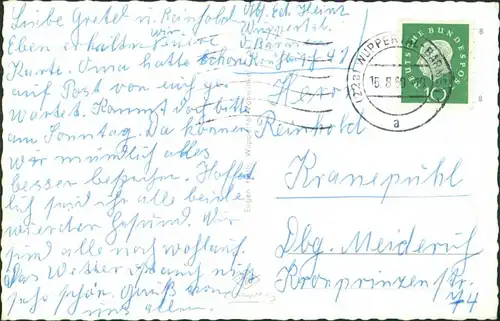 Liebe Gretel u. Reinhold
Abs. Ed. Heinz
Wuppertal
Eben erhalten wir eure
Karte. Oma hatte schon
auf Post von euch ge
wartet. Kommt doch bitte
am Sonntag. Da können
wir mündlich alles
besser besprechen. Hoffent
lich seid ihr alle beide
wieder gesund. Wir
sind alle noch wohlauf.
Das Wetter ist auch nicht
sehr schön. Gruß von
uns allen.
Herr
Reinhold
Kranepühl
Dbg. Meiderich
Kronprinzenstr.
74
DEUTSCHE BUNDESPOST
10
(22a) WUPPERTAL-BARMEN
16.8.60
a